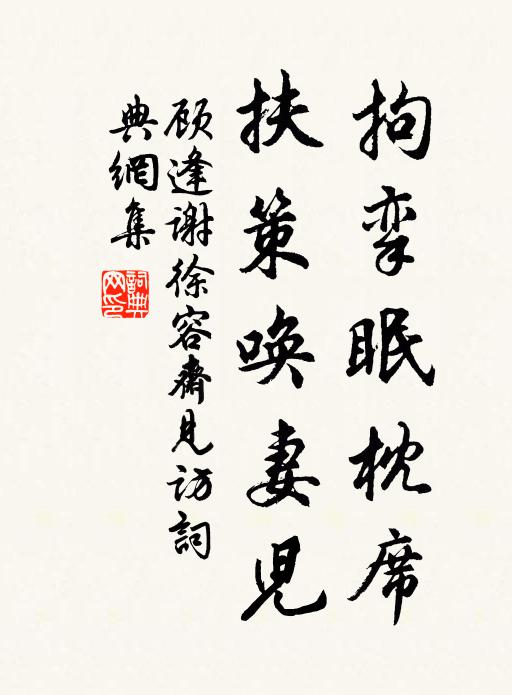 拘挛眠枕席
扶策唤妻儿
顾逢谢徐容斋见访词
典網集
詞典網印